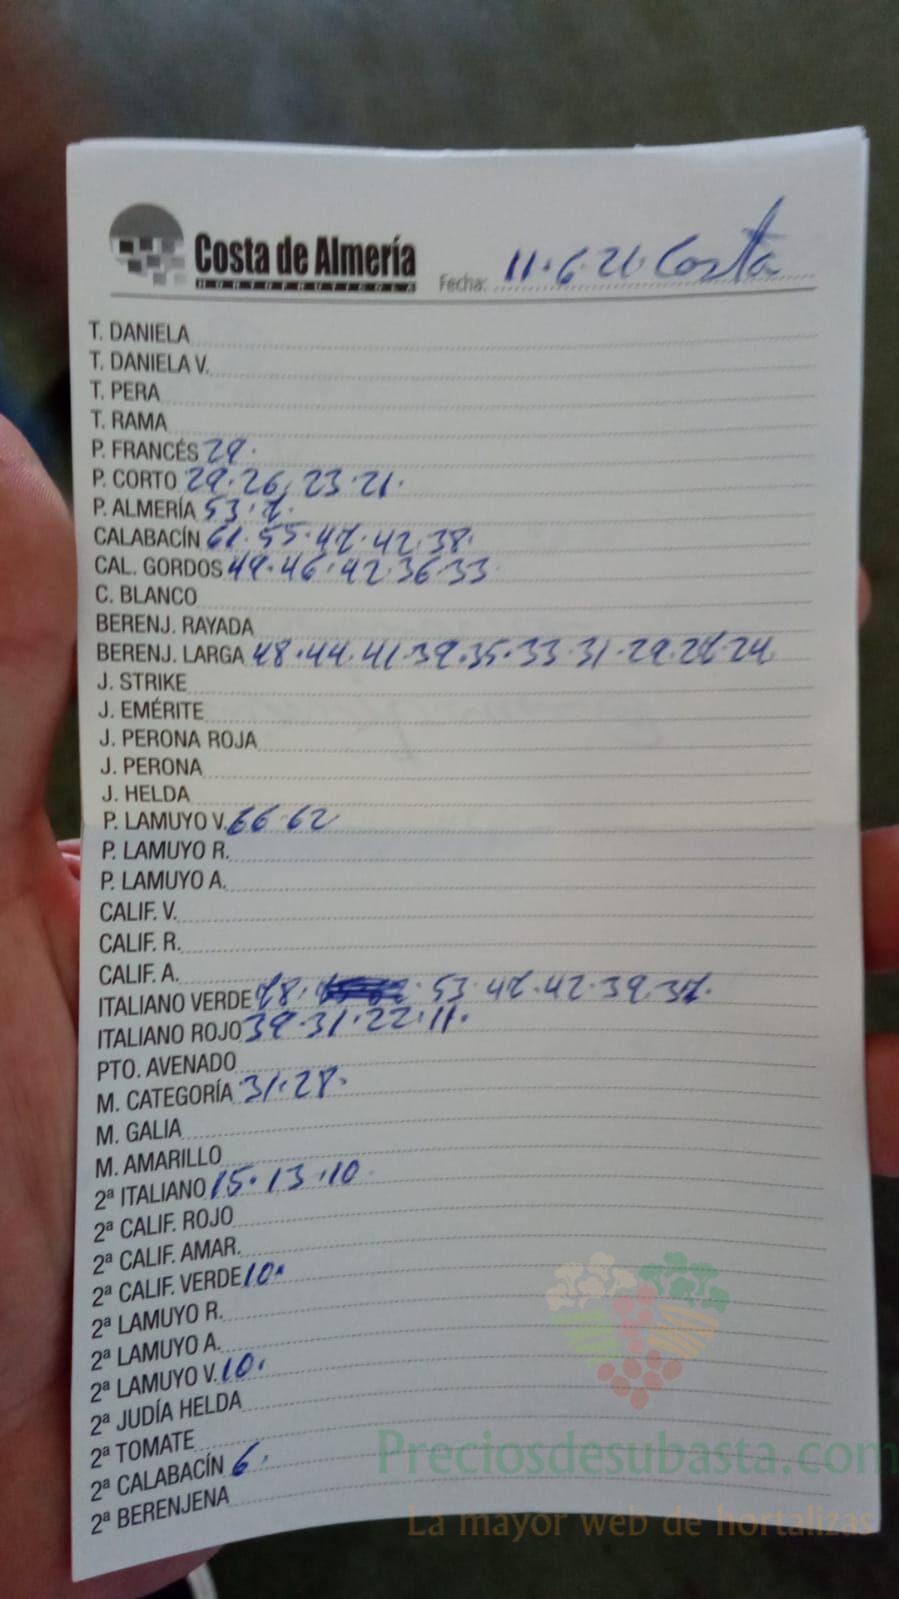 Costa de Almería
HORTOFRUTICOLA
Fecha: 11.6.21 Costa
T. DANIELA
T. DANIELA V.
T. PERA
T. RAMA
P. FRANCÉS 29.
P. CORTO 29.26.23.21.
P. ALMERÍA 53.
CALABACÍN 61.55.47.42.38.
CAL. GORDOS 49.46.42.36.33
C. BLANCO
BERENJ. RAYADA
BERENJ. LARGA 48.44.41.39.35.33.31.29.27.24
J. STRIKE
J. EMÉRITE
J. PERONA ROJA
J. PERONA
J. HELDA
P. LAMUYO V. 66.62
P. LAMUYO R.
P. LAMUYO A.
CALIF. V.
CALIF. R.
CALIF. A.
ITALIANO VERDE 78. 53.47.42.39.37.
ITALIANO ROJO 39.31.22.11.
PTO. AVENADO
M. CATEGORÍA 31.28.
M. GALIA
M. AMARILLO
2ª ITALIANO 15.13.10
2ª CALIF. ROJO
2ª CALIF. AMAR.
2ª CALIF. VERDE 10.
2ª LAMUYO R.
2ª LAMUYO A.
2ª LAMUYO V. 10.
2ª JUDÍA HELDA
2ª TOMATE
2ª CALABACÍN 6.
2ª BERENJENA
Preciosdesubasta.com
La mayor web de hortalizas